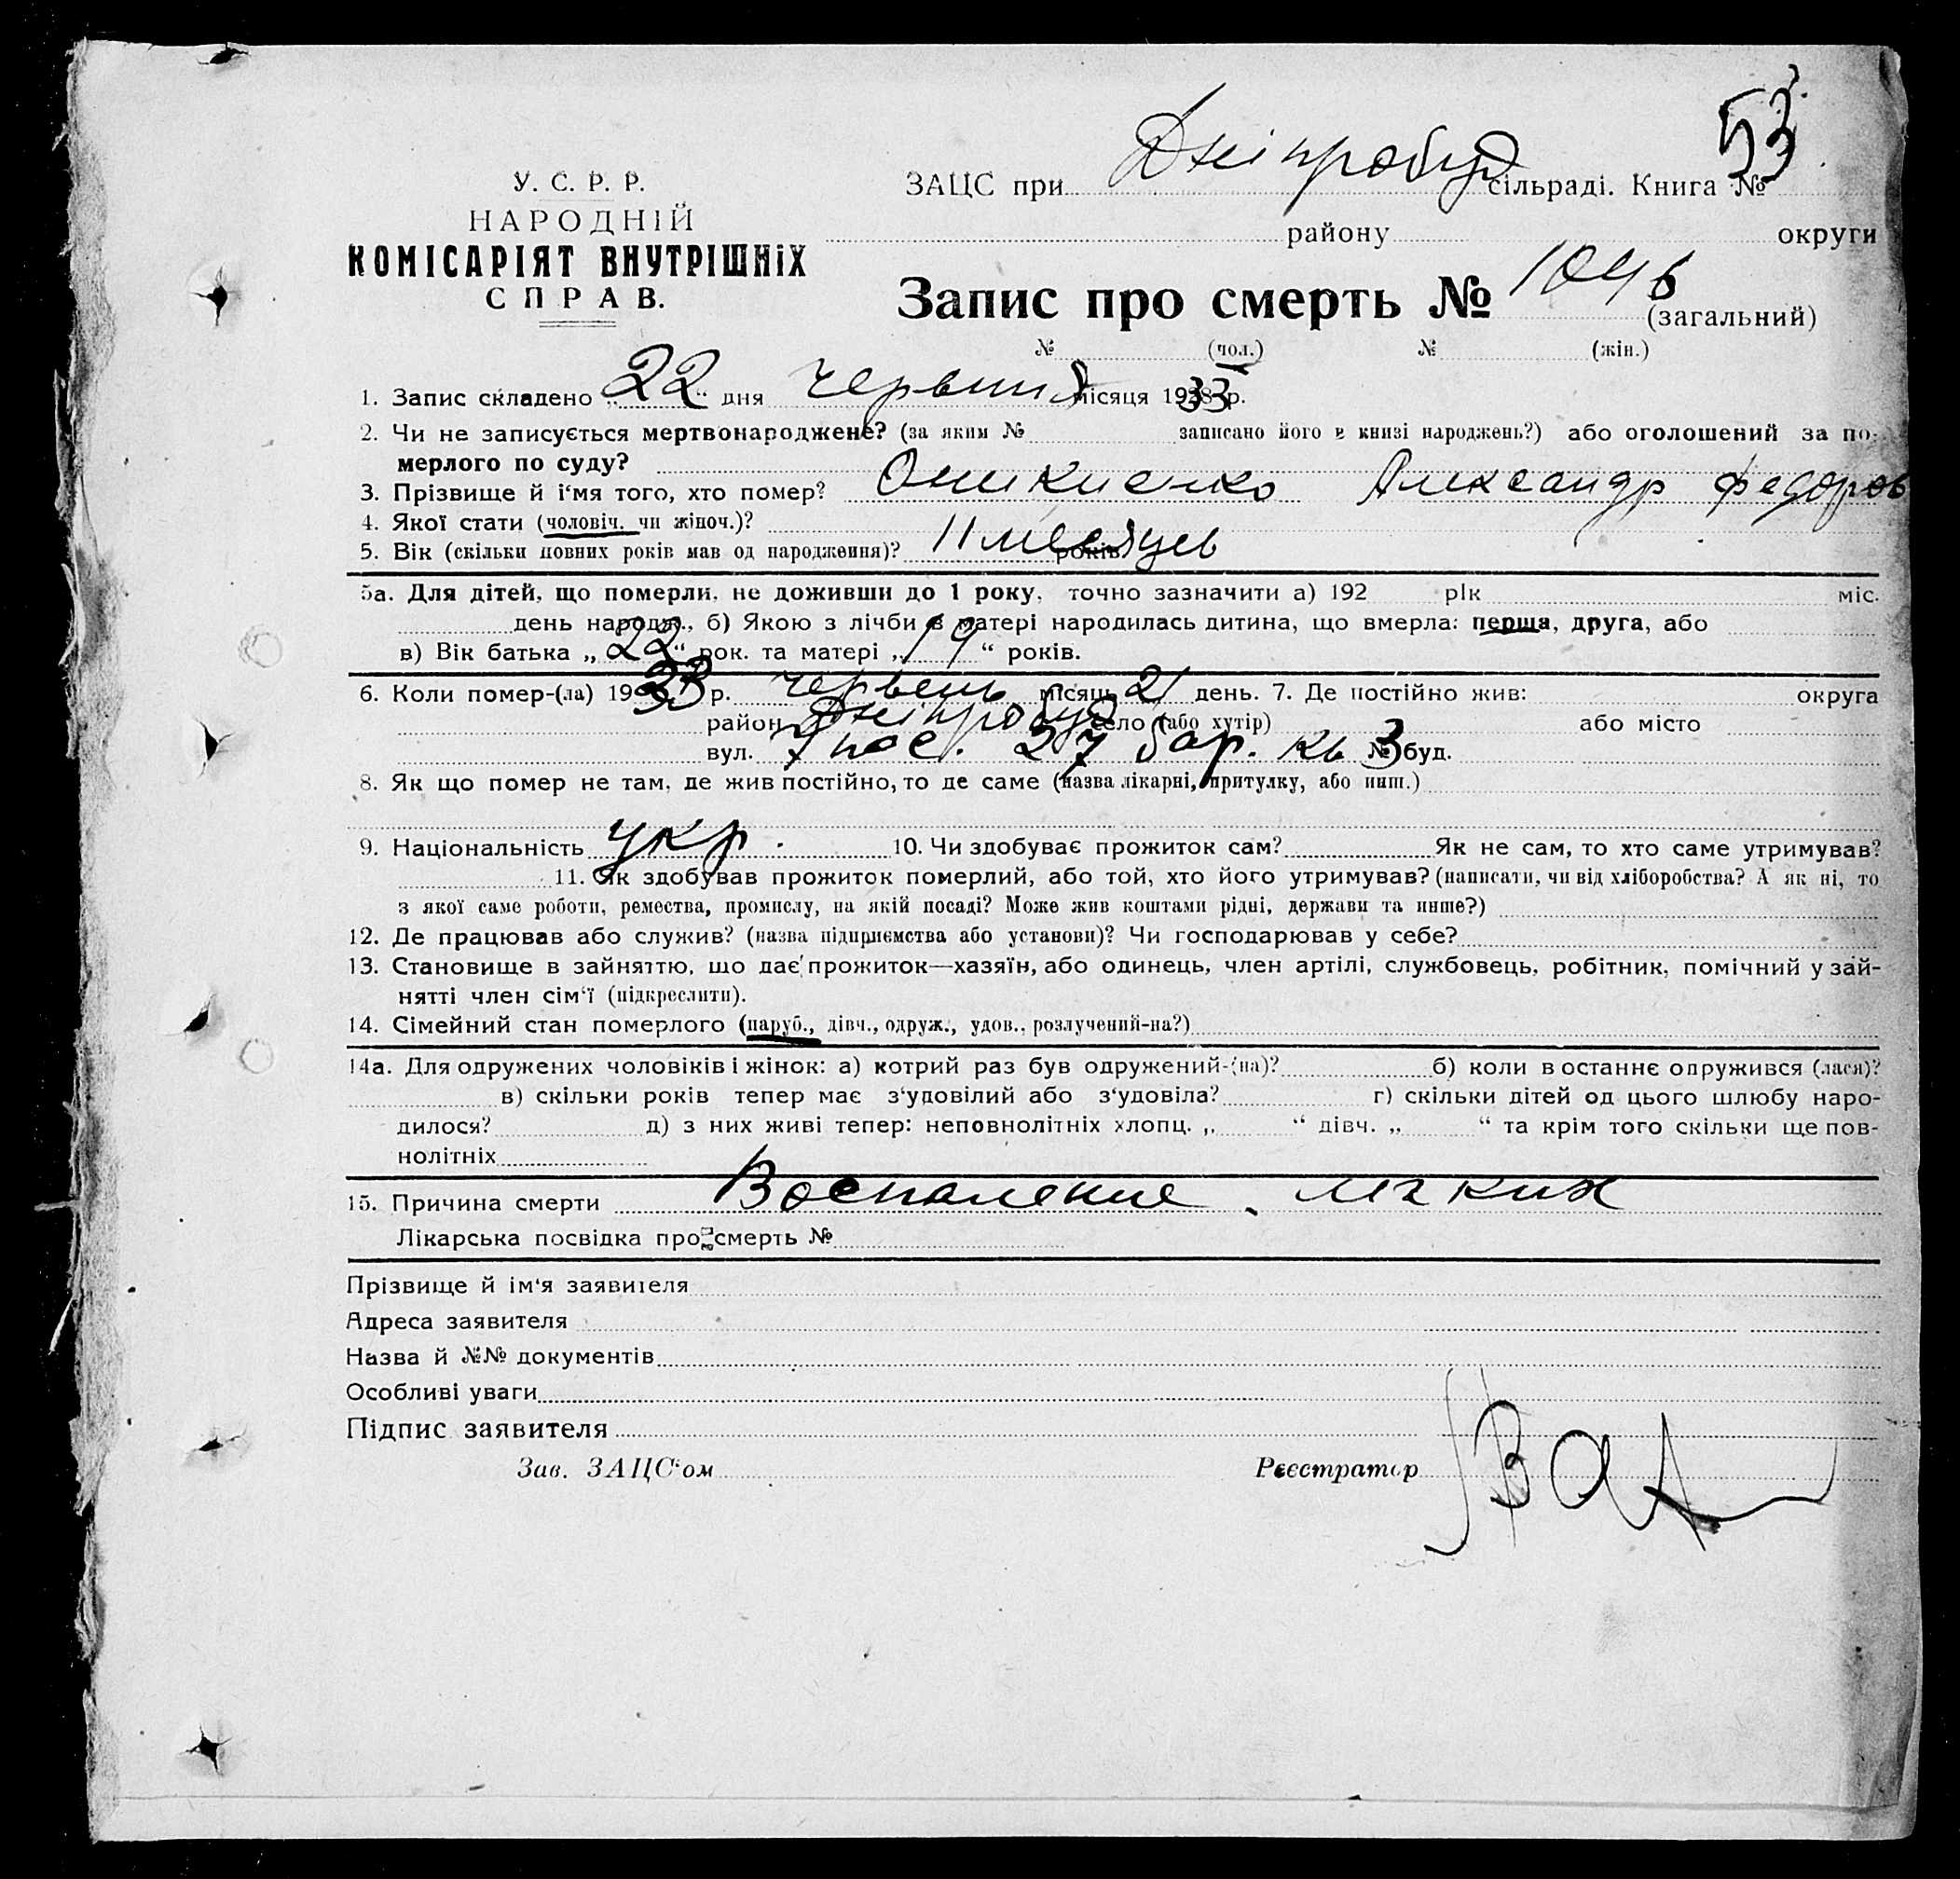 53
У. С. Р. Р.
НАРОДНІЙ
КОМІСАРІЯТ ВНУТРІШНІХ
СПРАВ.
ЗАЦС при Дніпробуд сільраді. Книга №
району округи
Запис про смерть № 1046 (загальний)
№ (чол.) № (жін.)
1. Запис складено „22“ дня червня місяця 1933 р.
2. Чи не записується мертвонароджене? (за яким № записано його в книзі народжень?) або оголошений за по-
мерлого по суду?
3. Прізвище й і‘мя того, хто помер? Александр Федоров
4. Якої стати (чоловіч. чи жіноч.)?
5. Вік (скільки повних років мав од народження)? 11 месяцев років
5а. Для дітей, що померли, не доживши до 1 року, точно зазначити а) 192 рік міс.
день народж., б) Якою з лічби в матері народилась дитина, що вмерла: перша, друга, або
в) Вік батька „22“ рок. та матері „19“ років.
6. Коли помер-(ла) 1933 р. червень місяць 21 день. 7. Де постійно жив: округа
район Дніпробуд село (або хутір) або місто
вул. 7 пос. 27 бар. кв 3 № буд.
8. Як що помер не там, де жив постійно, то де саме (назва лікарні, притулку, або инш.)
9. Національність укр. 10. Чи здобуває прожиток сам? Як не сам, то хто саме утримував?
11. Як здобував прожиток померлий, або той, хто його утримував? (написати, чи від хліборобства? А як ні, то
з якої саме роботи, ремества, промислу, на якій посаді? Може жив коштами рідні, держави та инше?)
12. Де працював або служив? (назва підприємства або установи)? Чи господарював у себе?
13. Становище в зайняттю, що дає прожиток—хазяїн, або одинець, член артілі, службовець, робітник, помічний у зай-
нятті член сім‘ї (підкреслити).
14. Сімейний стан померлого (паруб., дівч., одруж., удов., розлучений-на?)
14а. Для одружених чоловіків і жінок: а) котрий раз був одружений-(на)? б) коли востаннє одружився (лася)?
в) скільки років тепер має з‘удовілий або з‘удовіла? г) скільки дітей од цього шлюбу наро-
дилося? д) з них живі тепер: неповнолітніх хлопц. „ “ дівч. „ “ та крім того скільки ще пов-
нолітніх
15. Причина смерти Воспаление легких
Лікарська посвідка про смерть №
Прізвище й ім‘я заявителя
Адреса заявителя
Назва й №№ документів
Особливі уваги
Підпис заявителя
Зав. ЗАЦС‘ом Реєстратор